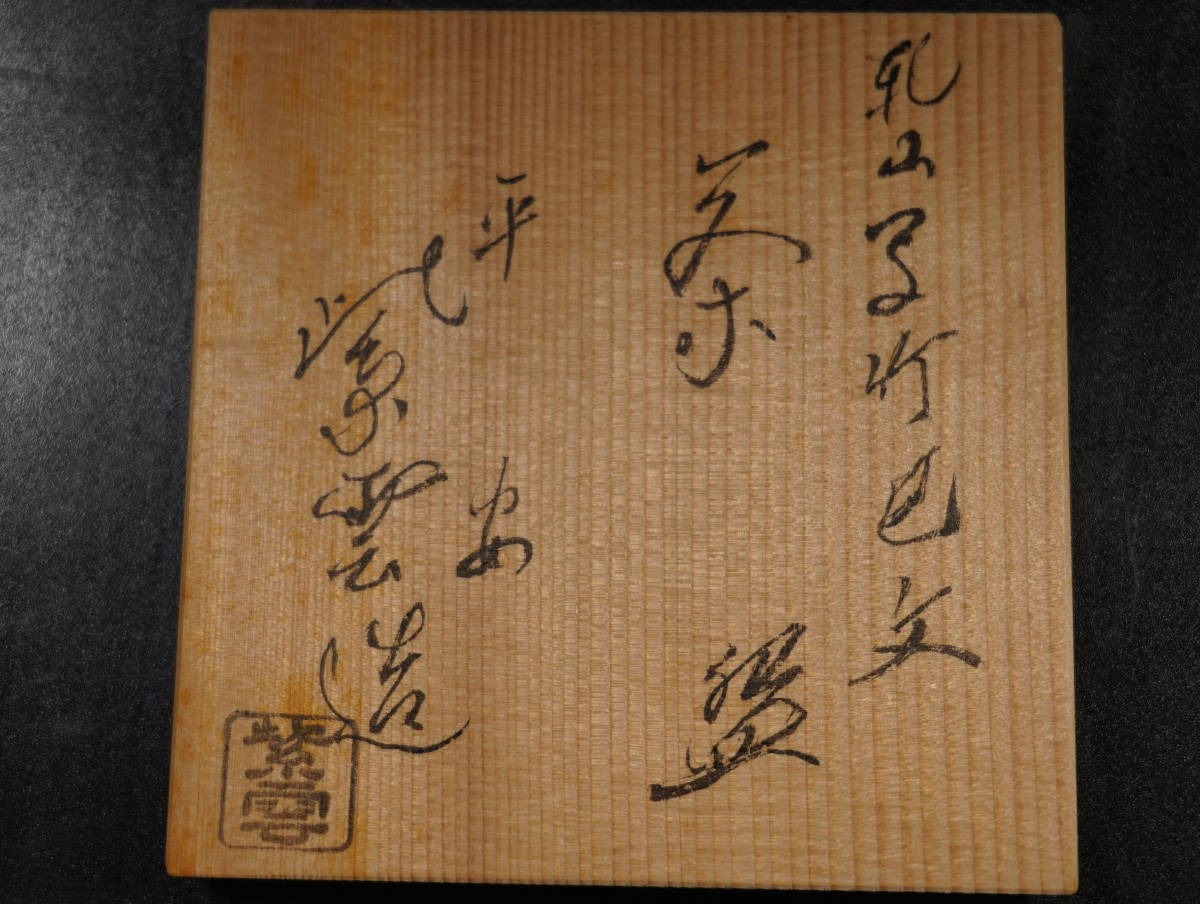 乾山写竹絵文
茶盌
平安
紫雲造
紫雲